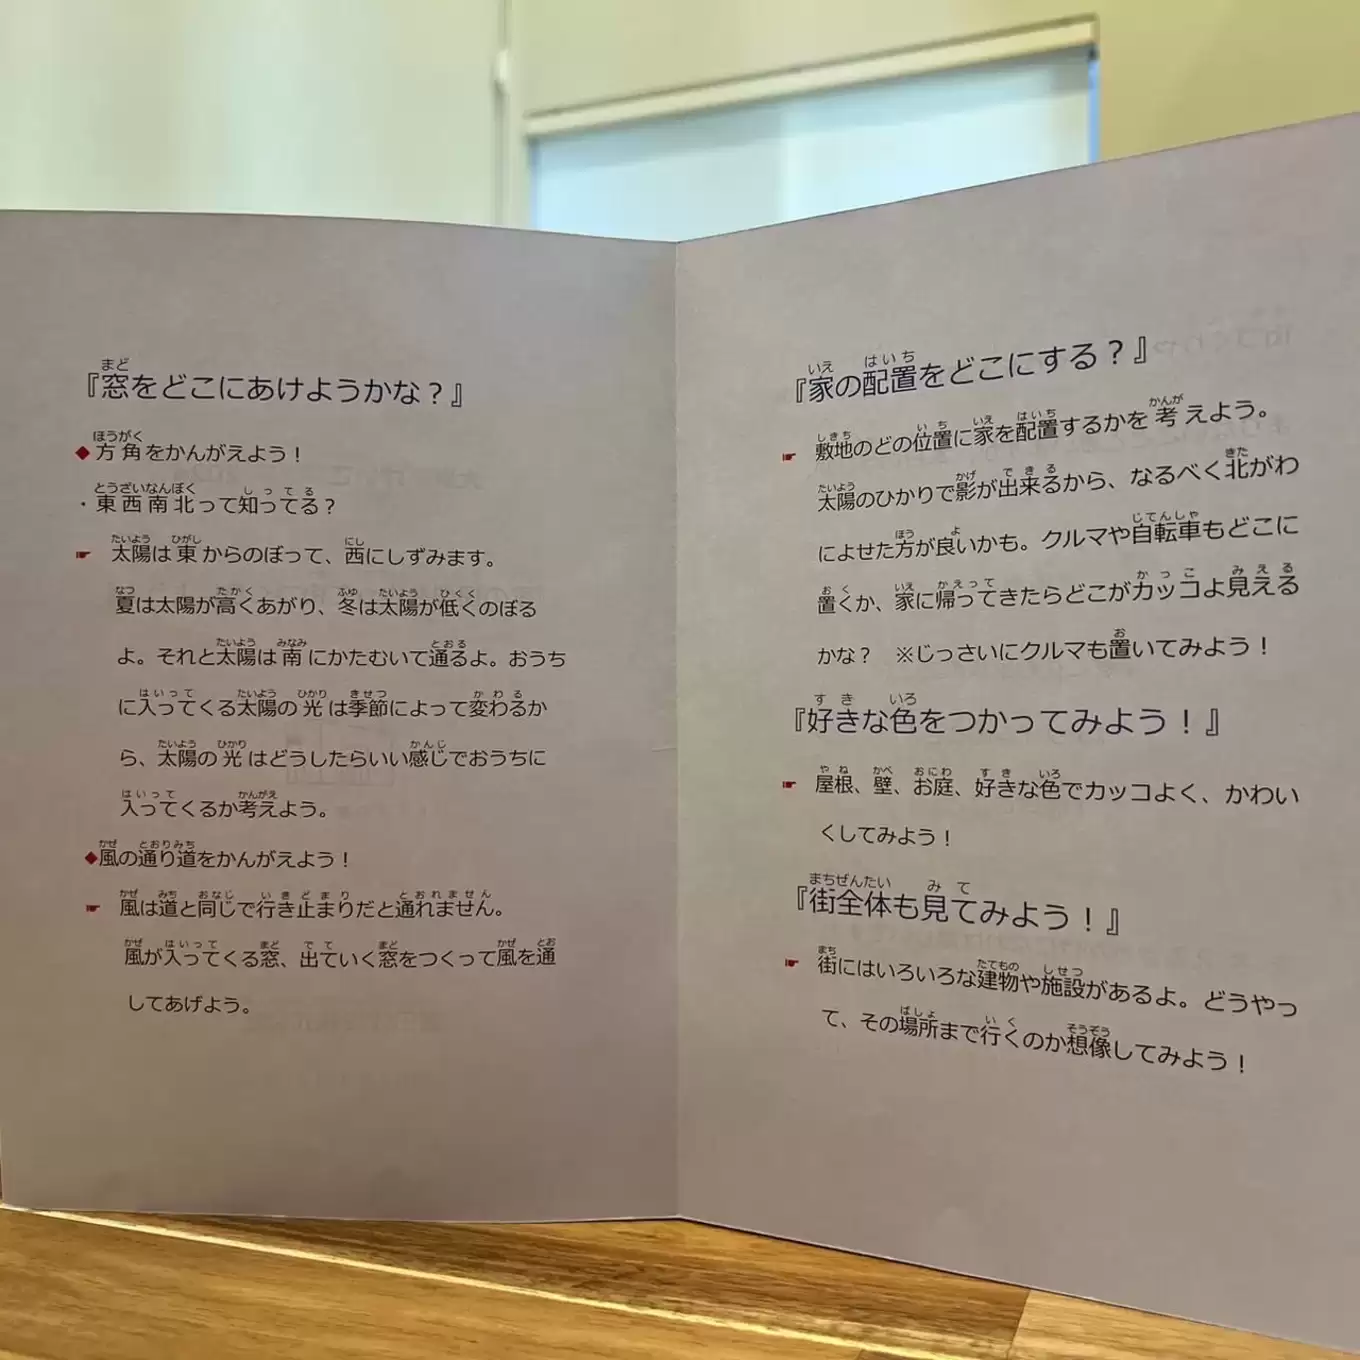 『窓をどこにあけようかな？』
◆方角をかんがえよう！
・東西南北って知ってる？
☛ 太陽は東からのぼって、西にしずみます。
夏は太陽が高くあがり、冬は太陽が低くのぼる
よ。それと太陽は南にかたむいて通るよ。おうち
に入ってくる太陽の光は季節によって変わるか
ら、太陽の光はどうしたらいい感じでおうちに
入ってくるか考えよう。
◆風の通り道をかんがえよう！
☛ 風は道と同じで行き止まりだと通れません。
風が入ってくる窓、出ていく窓をつくって風を通
してあげよう。
『家の配置をどこにする？』
☛ 敷地のどの位置に家を配置するかを考えよう。
太陽のひかりで影が出来るから、なるべく北がわ
によせた方が良いかも。クルマや自転車もどこに
置くか、家に帰ってきたらどこがカッコよ見える
かな？　※じっさいにクルマも置いてみよう！
『好きな色をつかってみよう！』
☛ 屋根、壁、お庭、好きな色でカッコよく、かわい
くしてみよう！
『街全体も見てみよう！』
☛ 街にはいろいろな建物や施設があるよ。どうやっ
て、その場所まで行くのか想像してみよう！